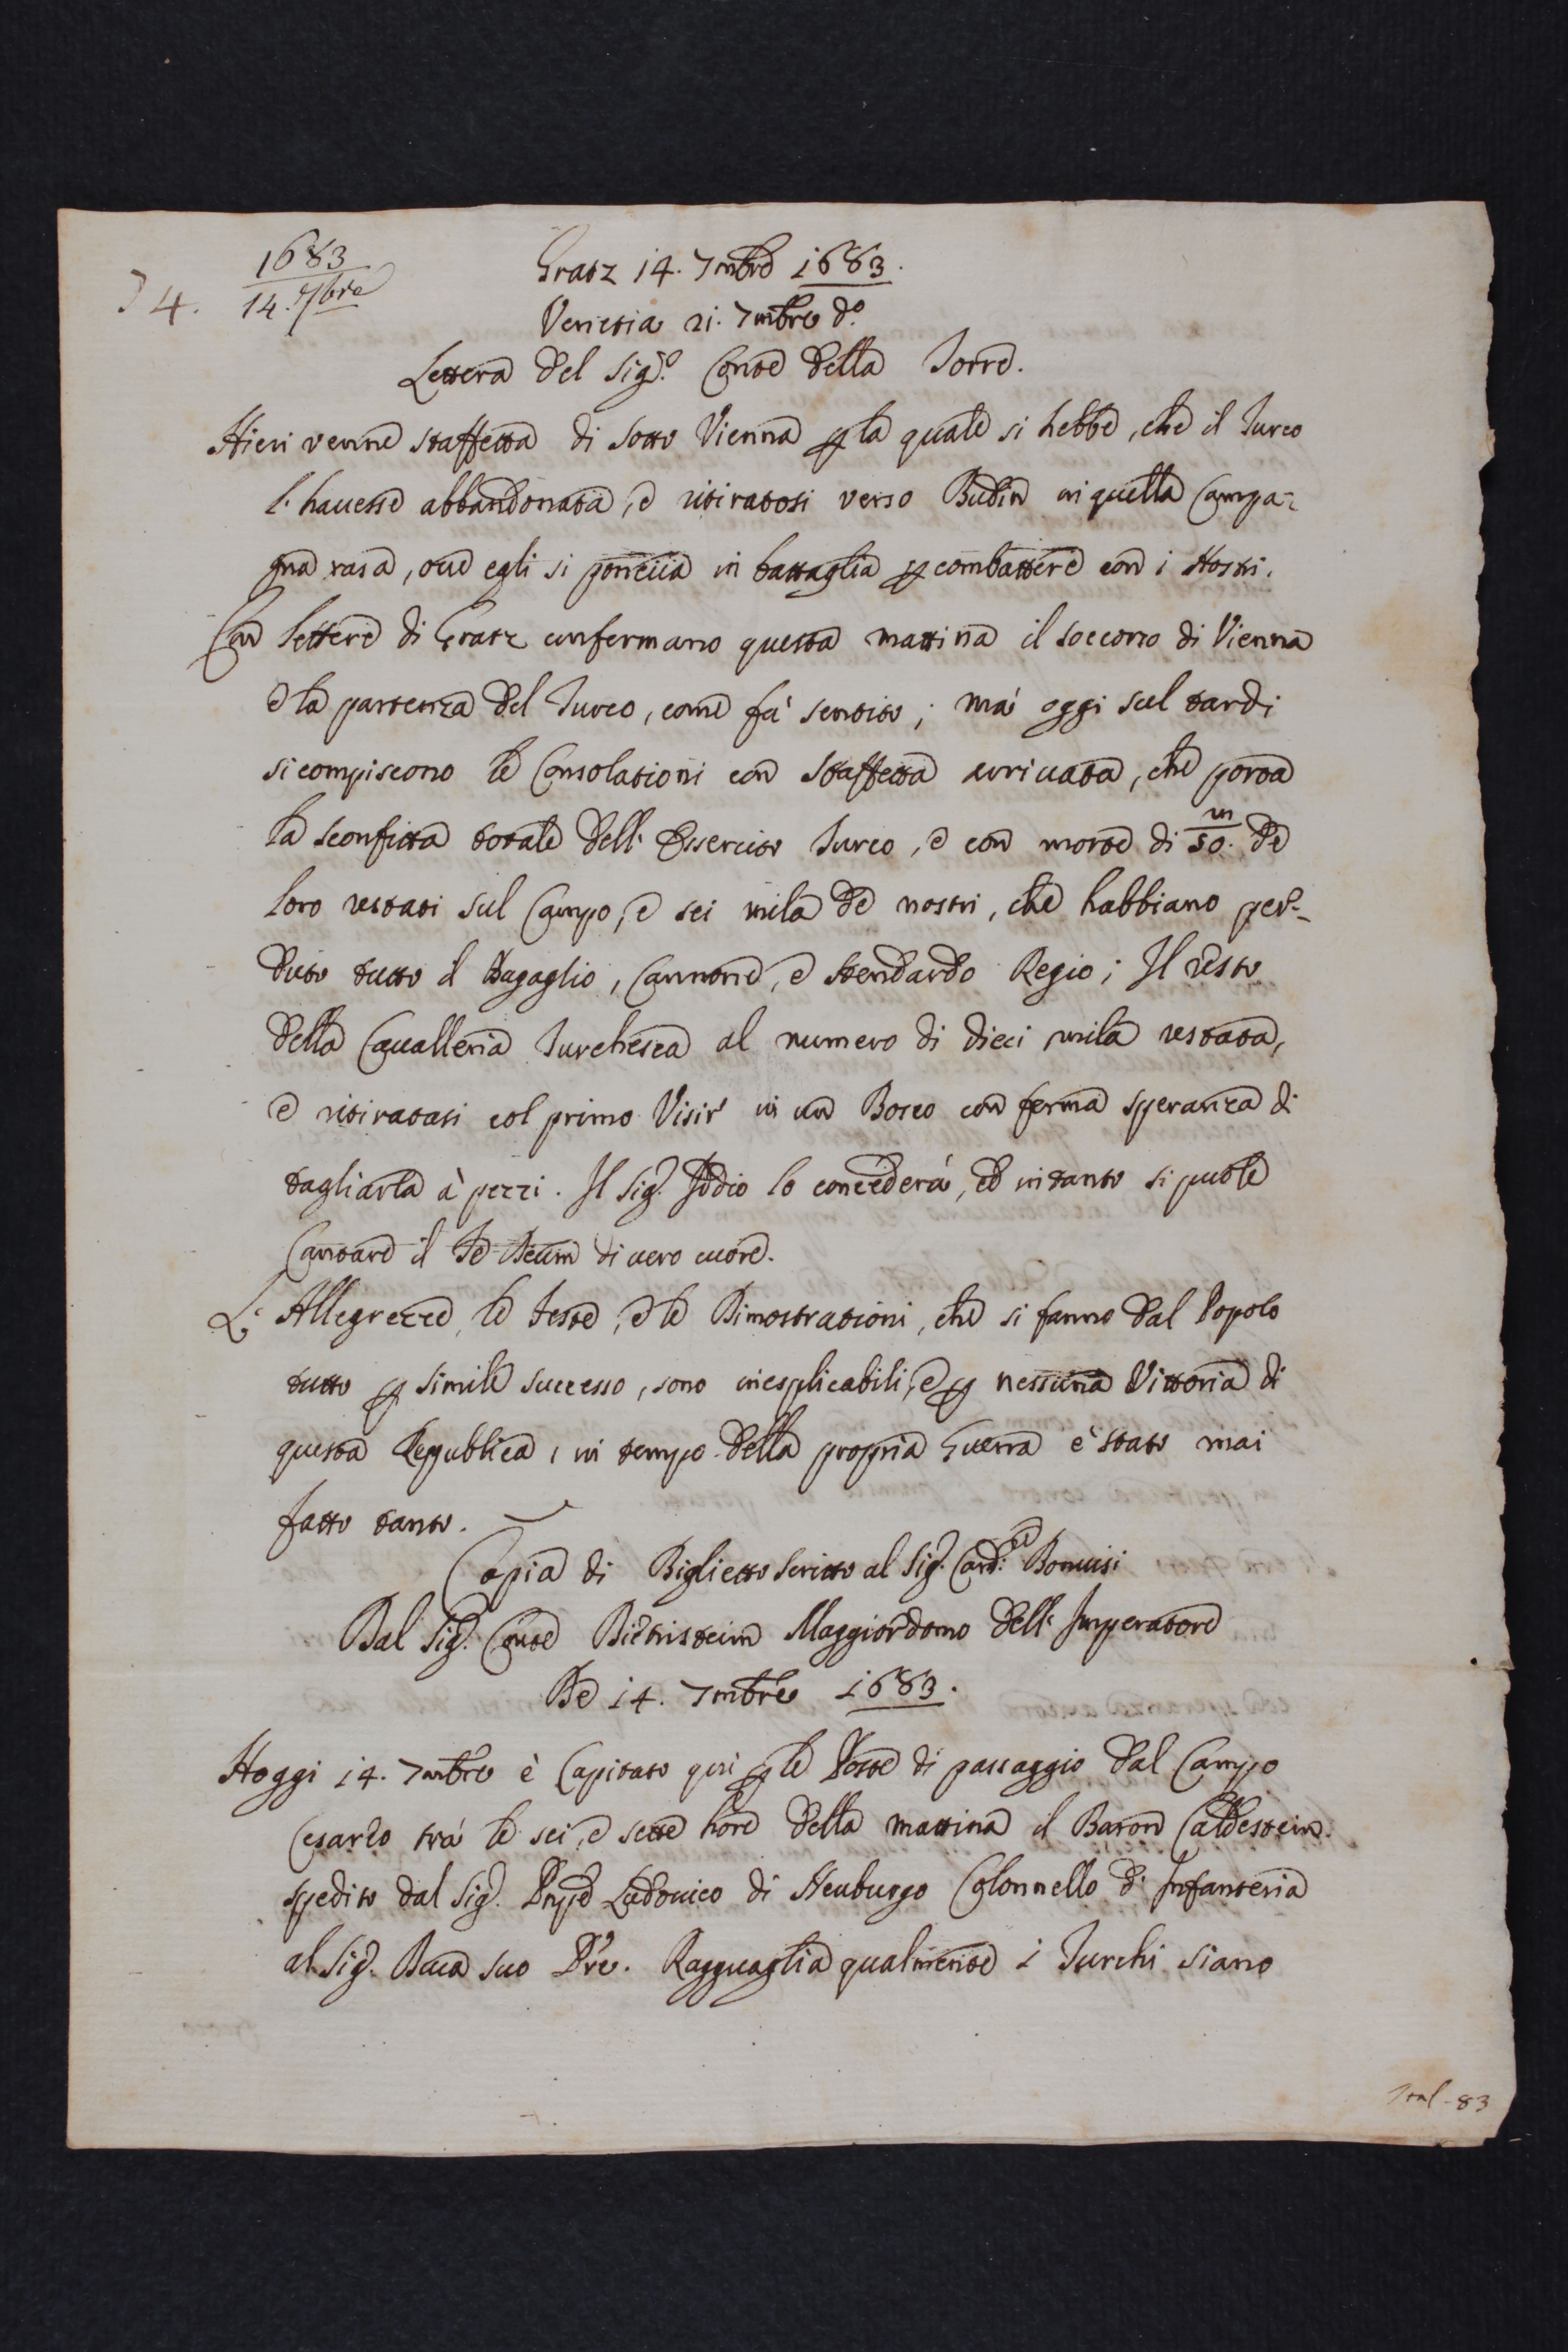 1683
14. 7bre
4.
Gratz 14. 7mbre 1683.
Venetia 21. 7mbre do.
Lettera del Sigo. Conte della Torre.
Hieri venne staffetta di sotto Vienna p la quale si hebbe, che il Turco
l'hauesse abbandonata, e ritiratosi verso Budin in quella Campa=
gna rasa, oue egli si poneua in battaglia p combattere con i Nostri.
Con lettere di Gratz confermano questa mattina il soccorso di Vienna
e la partenza del Turco, come fù sentito; mà oggi sul tardi
si compiscono le Consolationi con Staffetta arriuata, che porta
la sconfitta totale dell'Essercito Turco, e con morte di 50.m de
loro restati sul Campo, e sei mila de nostri, che habbiano per=
duto tutto il Bagaglio, Cannone, e Stendardo Regio; Il resto
della Caualleria Turchesca al numero di dieci mila restata,
e ritiratasi col primo Visir in un Bosco con ferma speranza di
tagliarla à pezzi. Il Sig. Iddio lo concederà, ed intanto si puole
Cantare il Te Deum di uero cuore.
L'Allegrezze, le feste, e le Dimostrationi, che si fanno dal Popolo
tutto p simile successo, sono inesplicabili, e p nessuna Vittoria di
questa Repubblica, in tempo della propria Guerra è stato mai
fatto tanto.
Copia di Biglietto scritto al Sig. Card.le Bonuisi
Dal Sig. Conte Dietristeim Maggiordomo dell'Imperatore
De 14. 7mbre 1683.
Hoggi 14. 7mbre è Capitato qui p le Poste di passaggio dal Campo
Cesareo trà le sei, e sette hore della mattina il Baron Caldestein
spedito dal Sig. Prnpe Ludouico di Neuburgo Colonnello d'Infanteria
al Sig. Duca suo Pre. Ragguaglia qualmente i Turchi siano